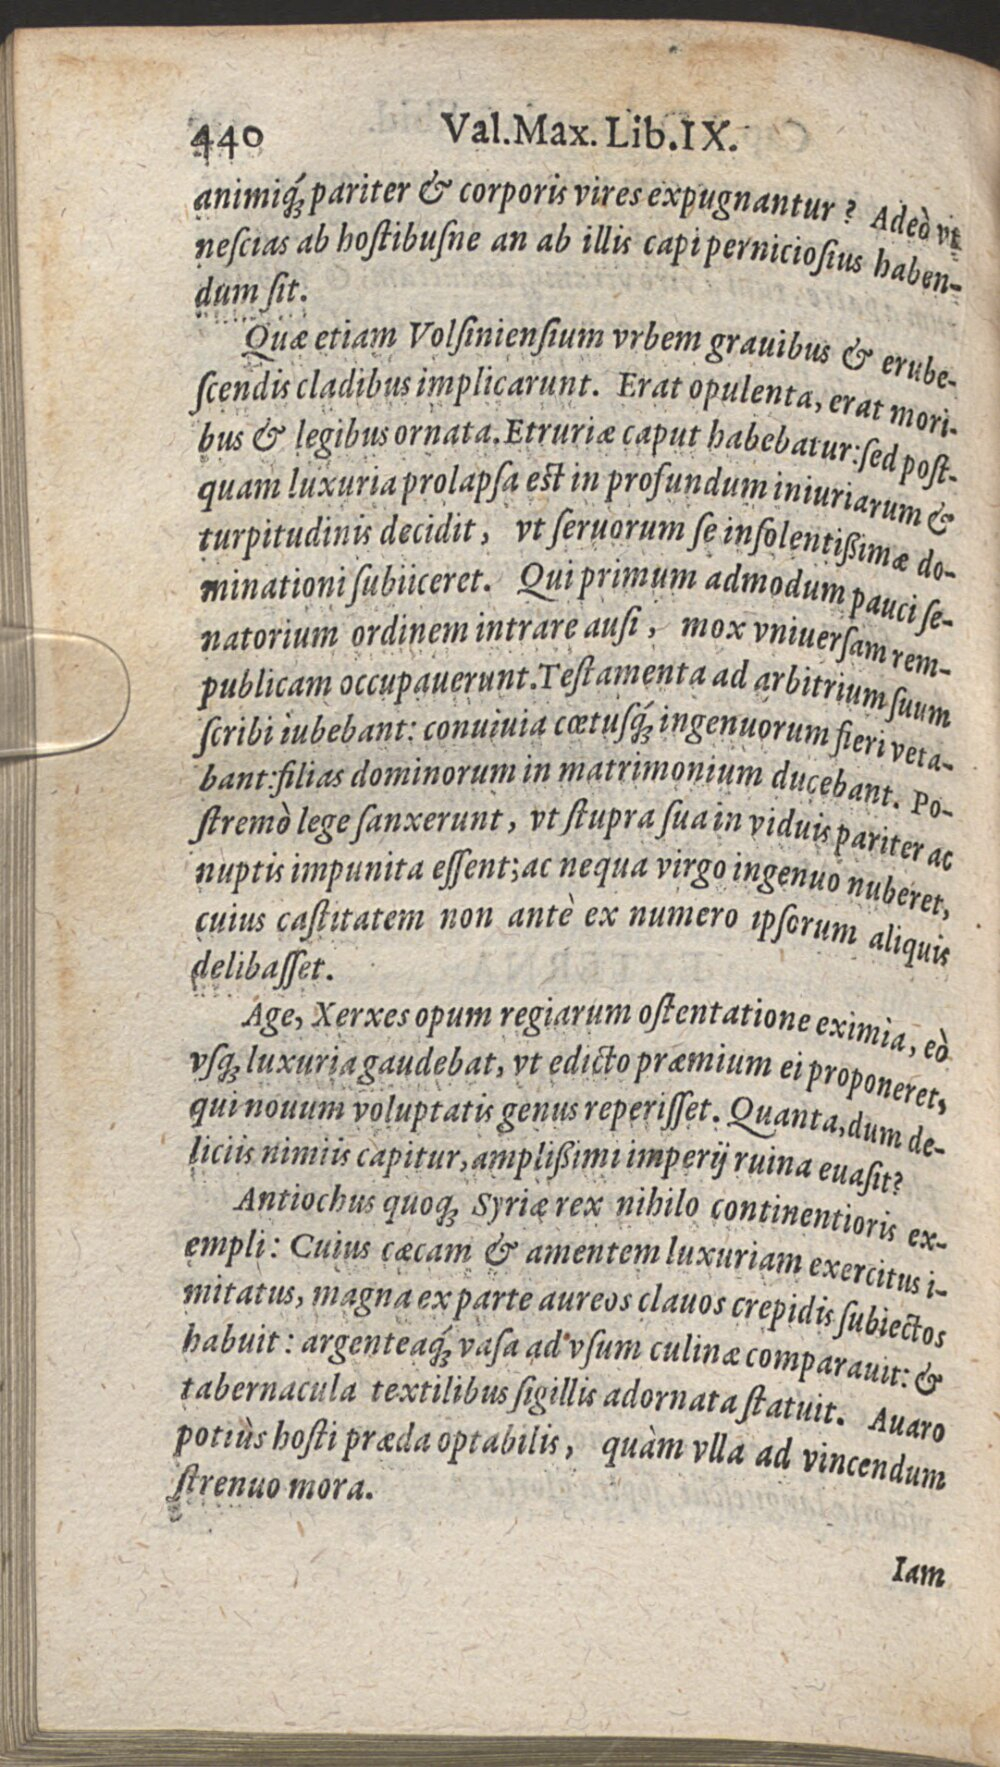 440 Val.Max.Lib.IX.
animiq́; pariter & corporis vires expugnantur? Adeò vt
neſcias ab hoſtibuſne an ab illis capi pernicioſius haben-
dum ſit.
Quæ etiam Volſinienſium vrbem grauibus & erube-
ſcendis cladibus implicarunt. Erat opulenta, erat mori-
bus & legibus ornata. Etruriæ caput habebatur: ſed poſt-
quam luxuria prolapſa eſt in profundum iniuriarum &
turpitudinis decidit, vt ſeruorum ſe inſolentißimæ do-
minationi ſubiiceret. Qui primum admodum pauci ſe-
natorium ordinem intrare auſi, mox vniuerſam rem-
publicam occupauerunt. Teſtamenta ad arbitrium ſuum
ſcribi iubebant: conuiuia cœtuſq́; ingenuorum fieri veta-
bant: filias dominorum in matrimonium ducebant. Po-
ſtremò lege ſanxerunt, vt ſtupra ſua in viduis pariter ac
nuptis impunita eſſent; ac nequa virgo ingenuo nuberet,
cuius caſtitatem non antè ex numero ipſorum aliquis
delibaſſet.
Age, Xerxes opum regiarum oſtentatione eximia, eò
vſq; luxuria gaudebat, vt edicto præmium ei proponeret,
qui nouum voluptatis genus reperiſſet. Quanta, dum de-
liciis nimiis capitur, amplißimi imperij ruina euaſit?
Antiochus quoq; Syriæ rex nihilo continentioris ex-
empli: Cuius cæcam & amentem luxuriam exercitus i-
mitatus, magna ex parte aureos clauos crepidis ſubiectos
habuit: argenteaq́; vaſa ad vſum culinæ comparauit: &
tabernacula textilibus ſigillis adornata ſtatuit. Auaro
potiùs hoſti præda optabilis, quàm vlla ad vincendum
ſtrenuo mora.
Iam